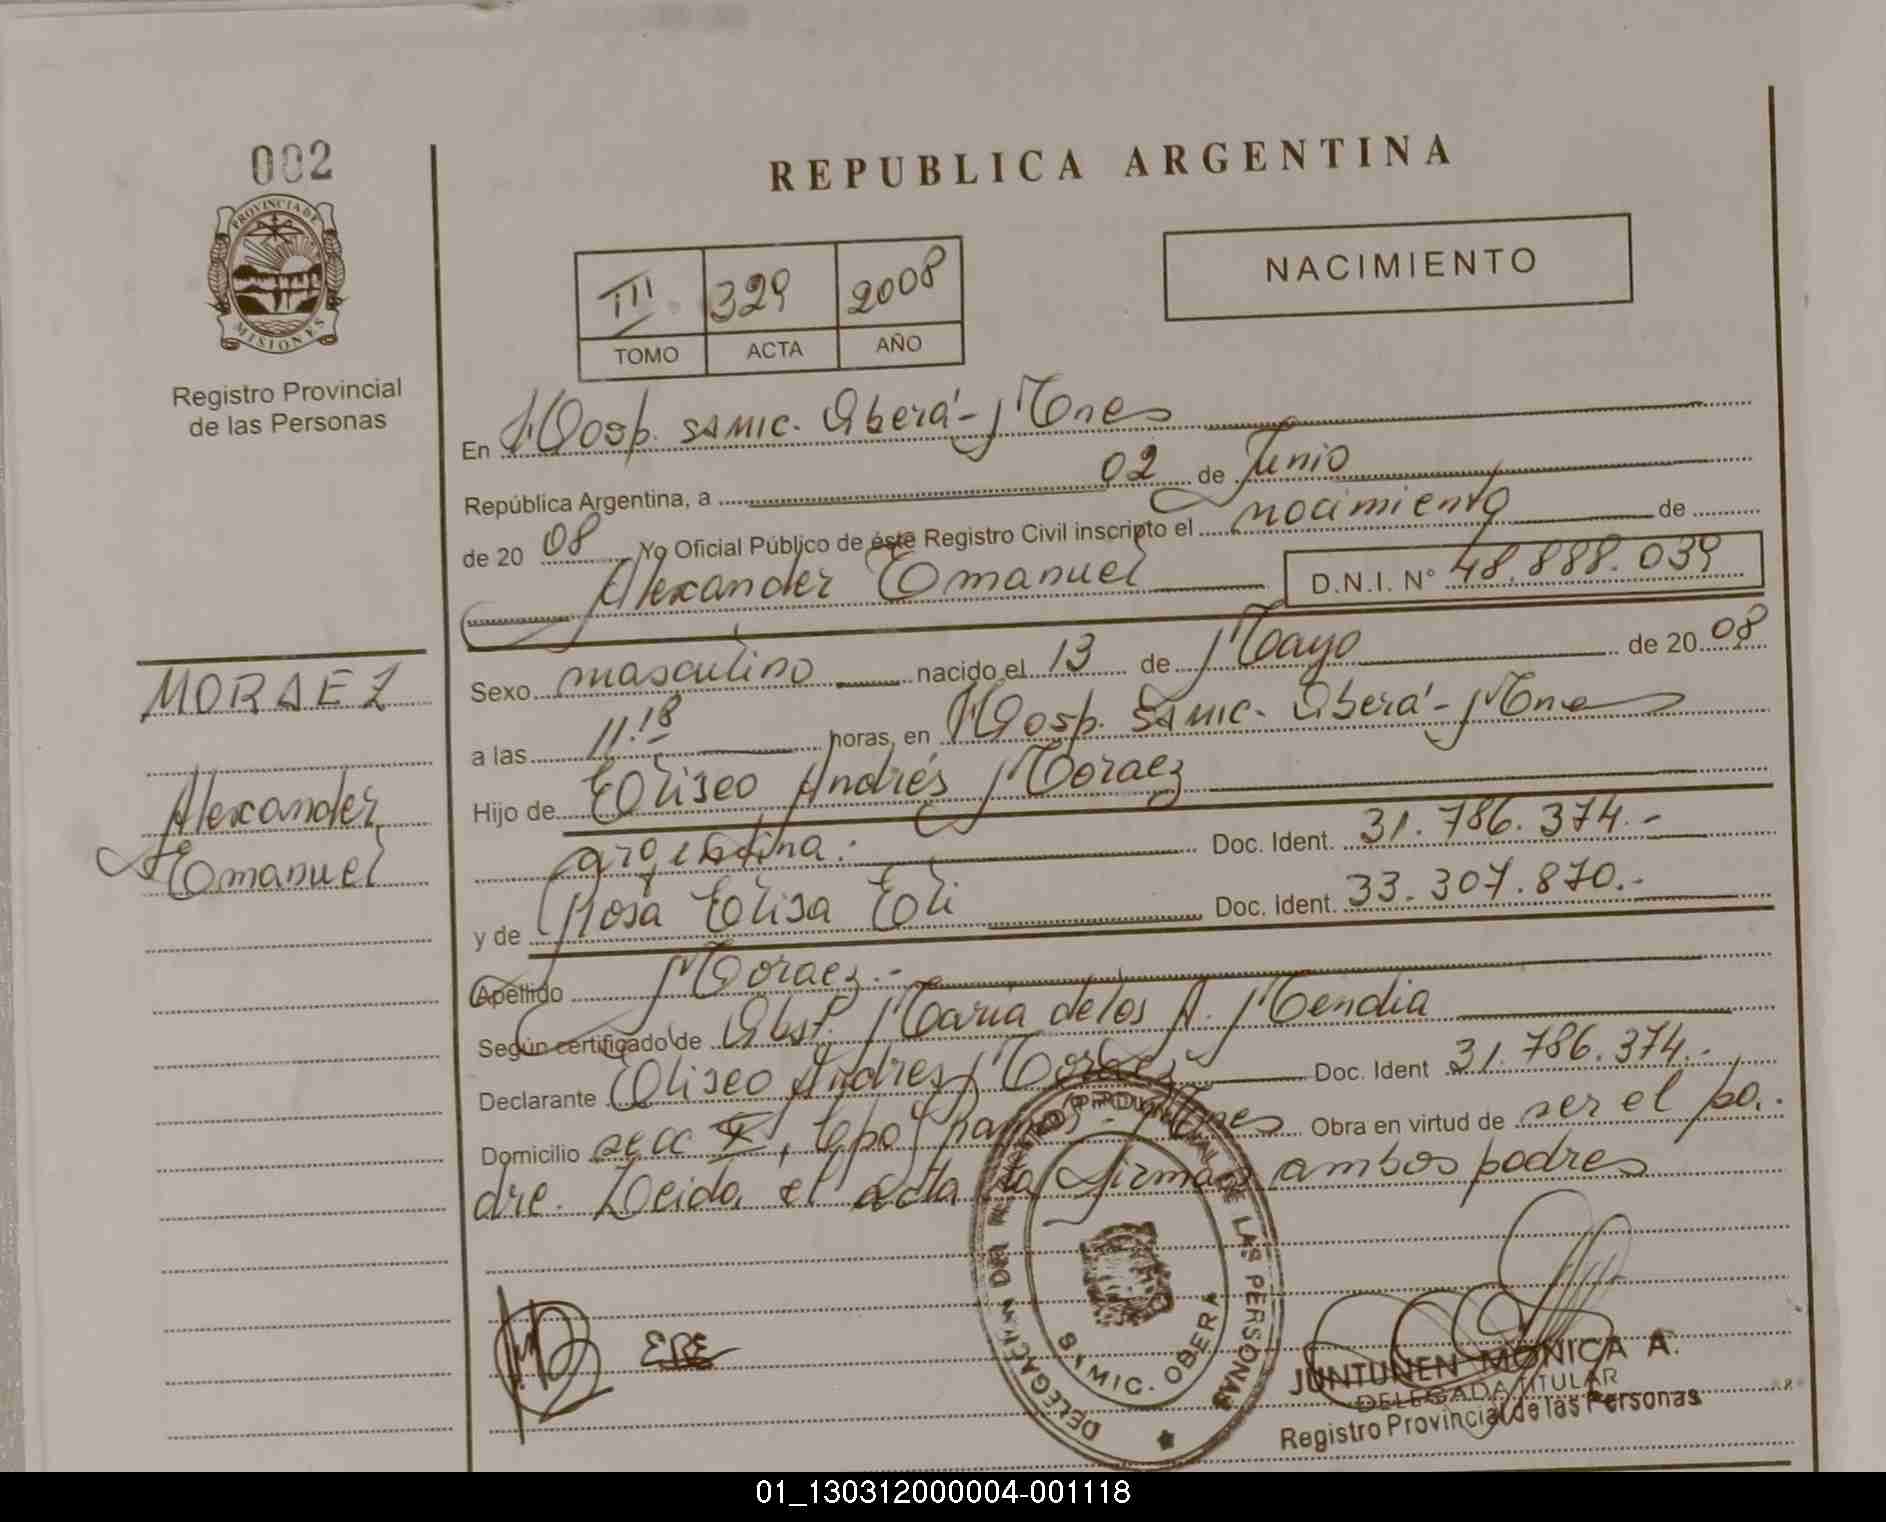 002
PROVINCIA DE
MISIONES
Registro Provincial
de las Personas
MORAEZ
Alexander
Emanuel
REPUBLICA ARGENTINA
III 329 2008
TOMO ACTA AÑO
NACIMIENTO
En Hosp. SAMIC. Oberá - Mnes
República Argentina, a 02 de Junio
de 20 08 Yo Oficial Público de éste Registro Civil inscripto el nacimiento de
Alexander Emanuel D.N.I. N° 48.888.039
Sexo masculino nacido el 13 de Mayo de 20 08
a las 11.18 horas, en Hosp. SAMIC. Oberá - Mnes
Hijo de Eliseo Andrés Moraez
argentina.- Doc. Ident. 31.786.374.-
y de Rosa Elisa Eli Doc. Ident. 33.307.870.-
Apellido Moraez.-
Según certificado de Obst. Maria de los A. Mendia
Declarante Eliseo Andres Moraez Doc. Ident 31.786.374.-
Domicilio secc Mnes Obra en virtud de ser el pa.
dre. Leida el acta la firman ambos padres
ERE
DELEGACION DEL REGISTRO PROVINCIAL DE LAS PERSONAS
SAMIC. OBERA
JUNTUNEN MONICA A.
DELEGADA TITULAR
Registro Provincial de las Personas
01_130312000004-001118